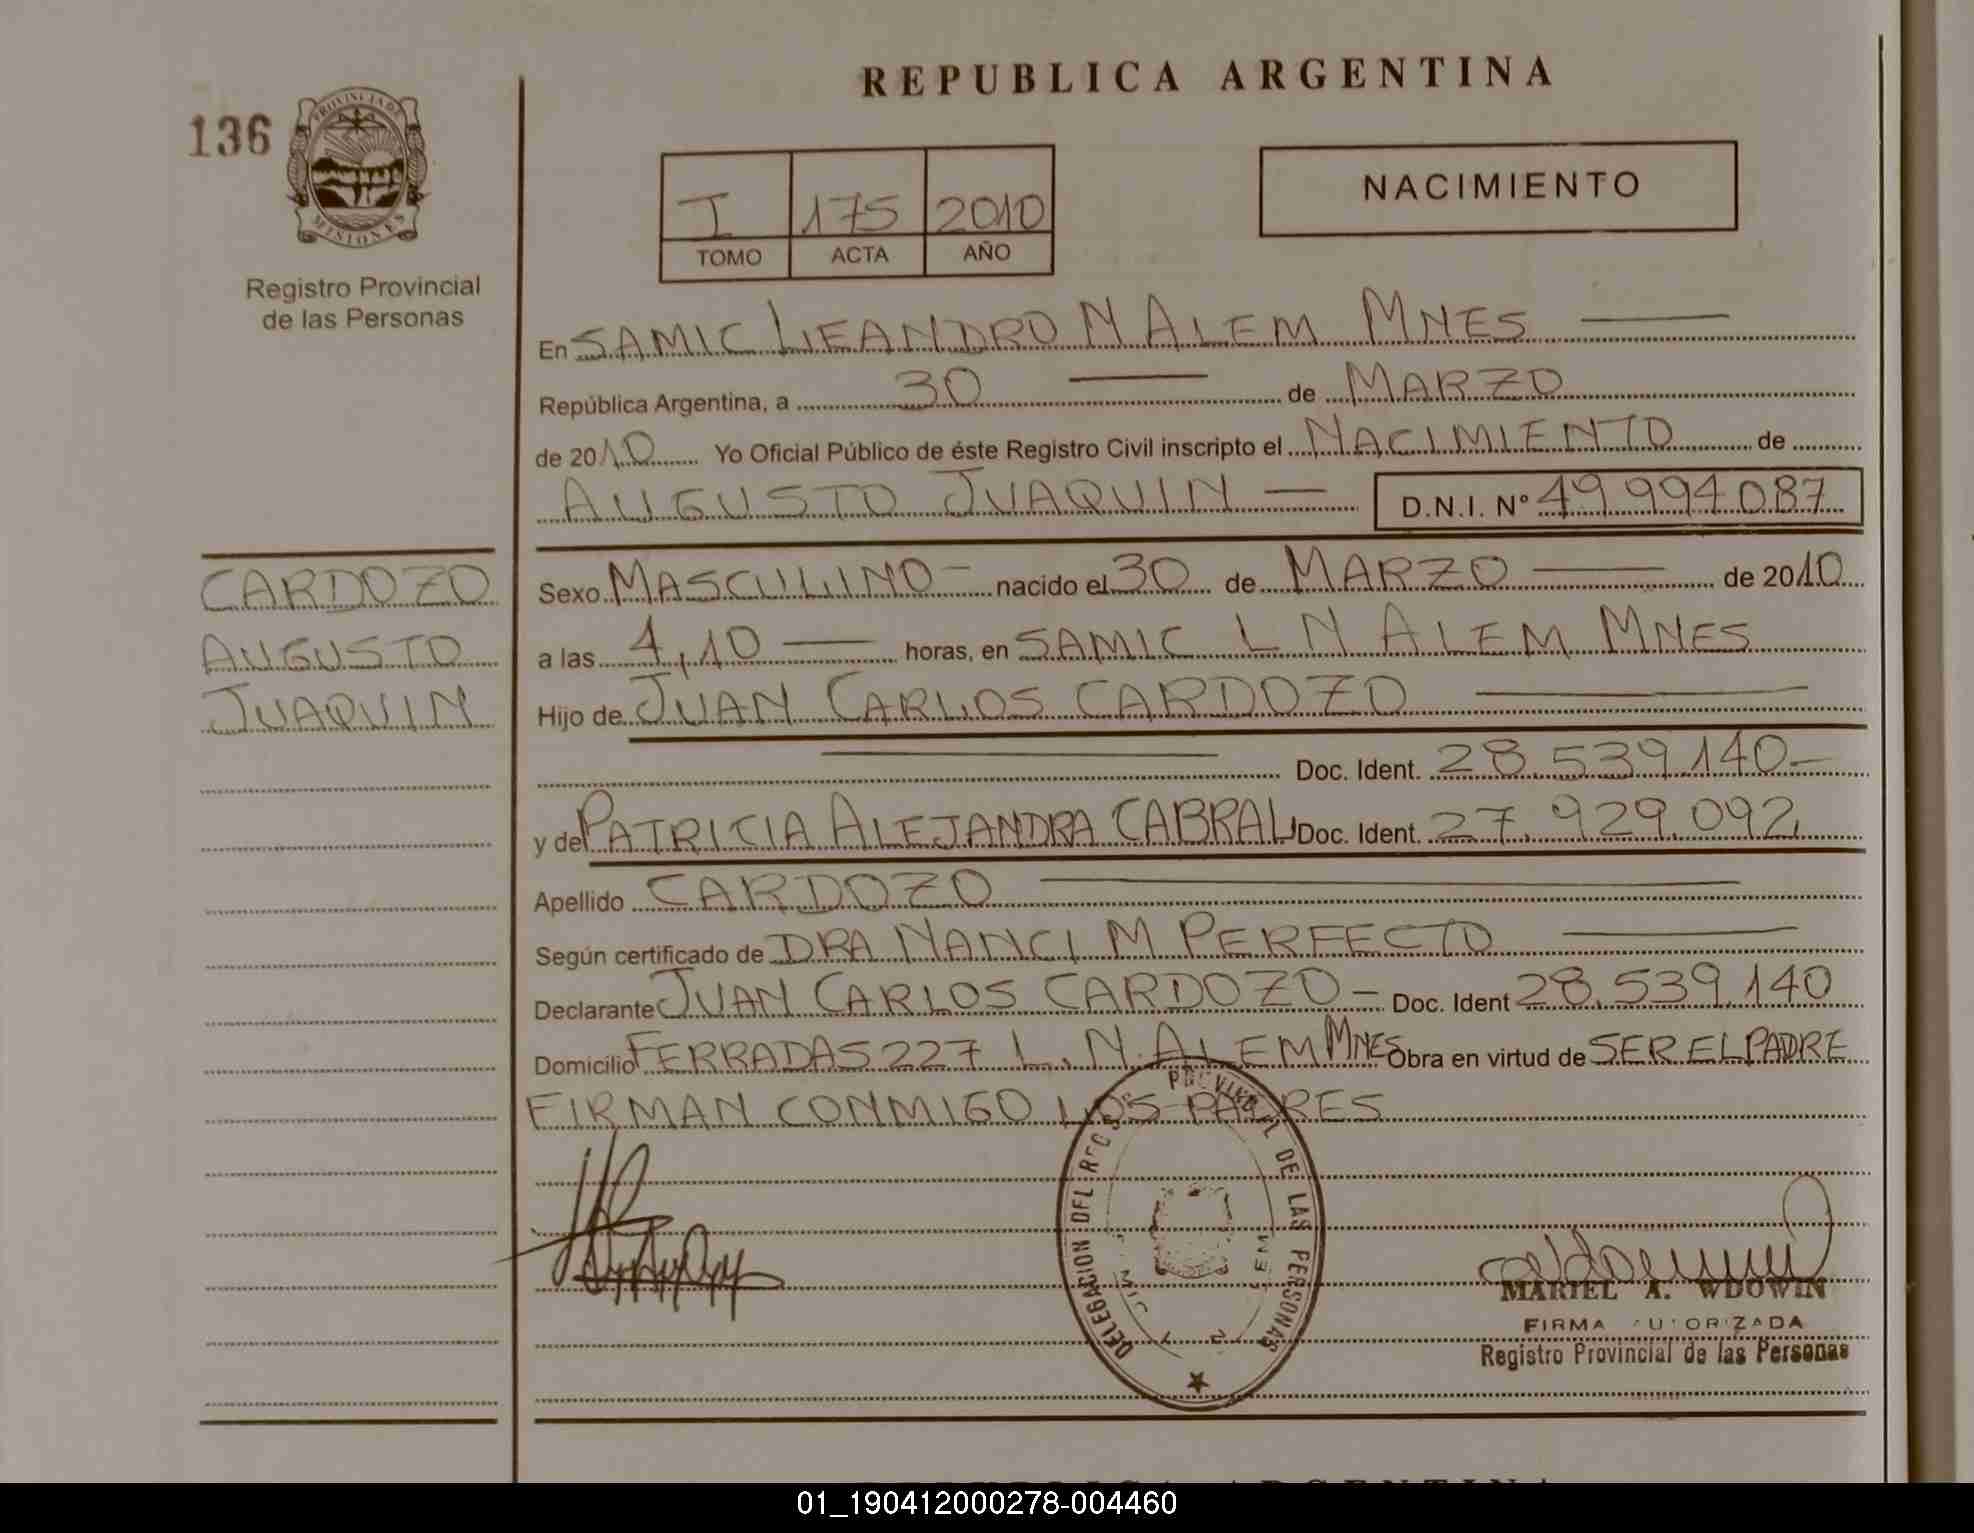 REPUBLICA ARGENTINA
136
PROVINCIA DE
MISIONES
Registro Provincial
de las Personas
I 175 2010
TOMO ACTA AÑO
NACIMIENTO
En SAMIC LEANDRO N ALEM MNES
República Argentina, a 30 de MARZO
de 2010 Yo Oficial Público de éste Registro Civil inscripto el NACIMIENTO de
AUGUSTO JUAQUIN D.N.I. Nº 49 994 087
CARDOZO
AUGUSTO
JUAQUIN
Sexo MASCULINO nacido el 30 de MARZO de 2010
a las 4,10 horas, en SAMIC L N ALEM MNES
Hijo de JUAN CARLOS CARDOZO
Doc. Ident. 28.539.140
y de PATRICIA ALEJANDRA CABRAL Doc. Ident. 27.929.092
Apellido CARDOZO
Según certificado de DRA NANCI M PERFECTO
Declarante JUAN CARLOS CARDOZO Doc. Ident 28.539.140
Domicilio FERRADAS 227 L.N. ALEM MNES Obra en virtud de SER EL PADRE
FIRMAN CONMIGO LOS PADRES
DELEGACION DEL PROVINCIAL DE LAS PERSONAS
MARIEL A. WDOWIN
FIRMA AUTORIZADA
Registro Provincial de las Personas
01_190412000278-004460